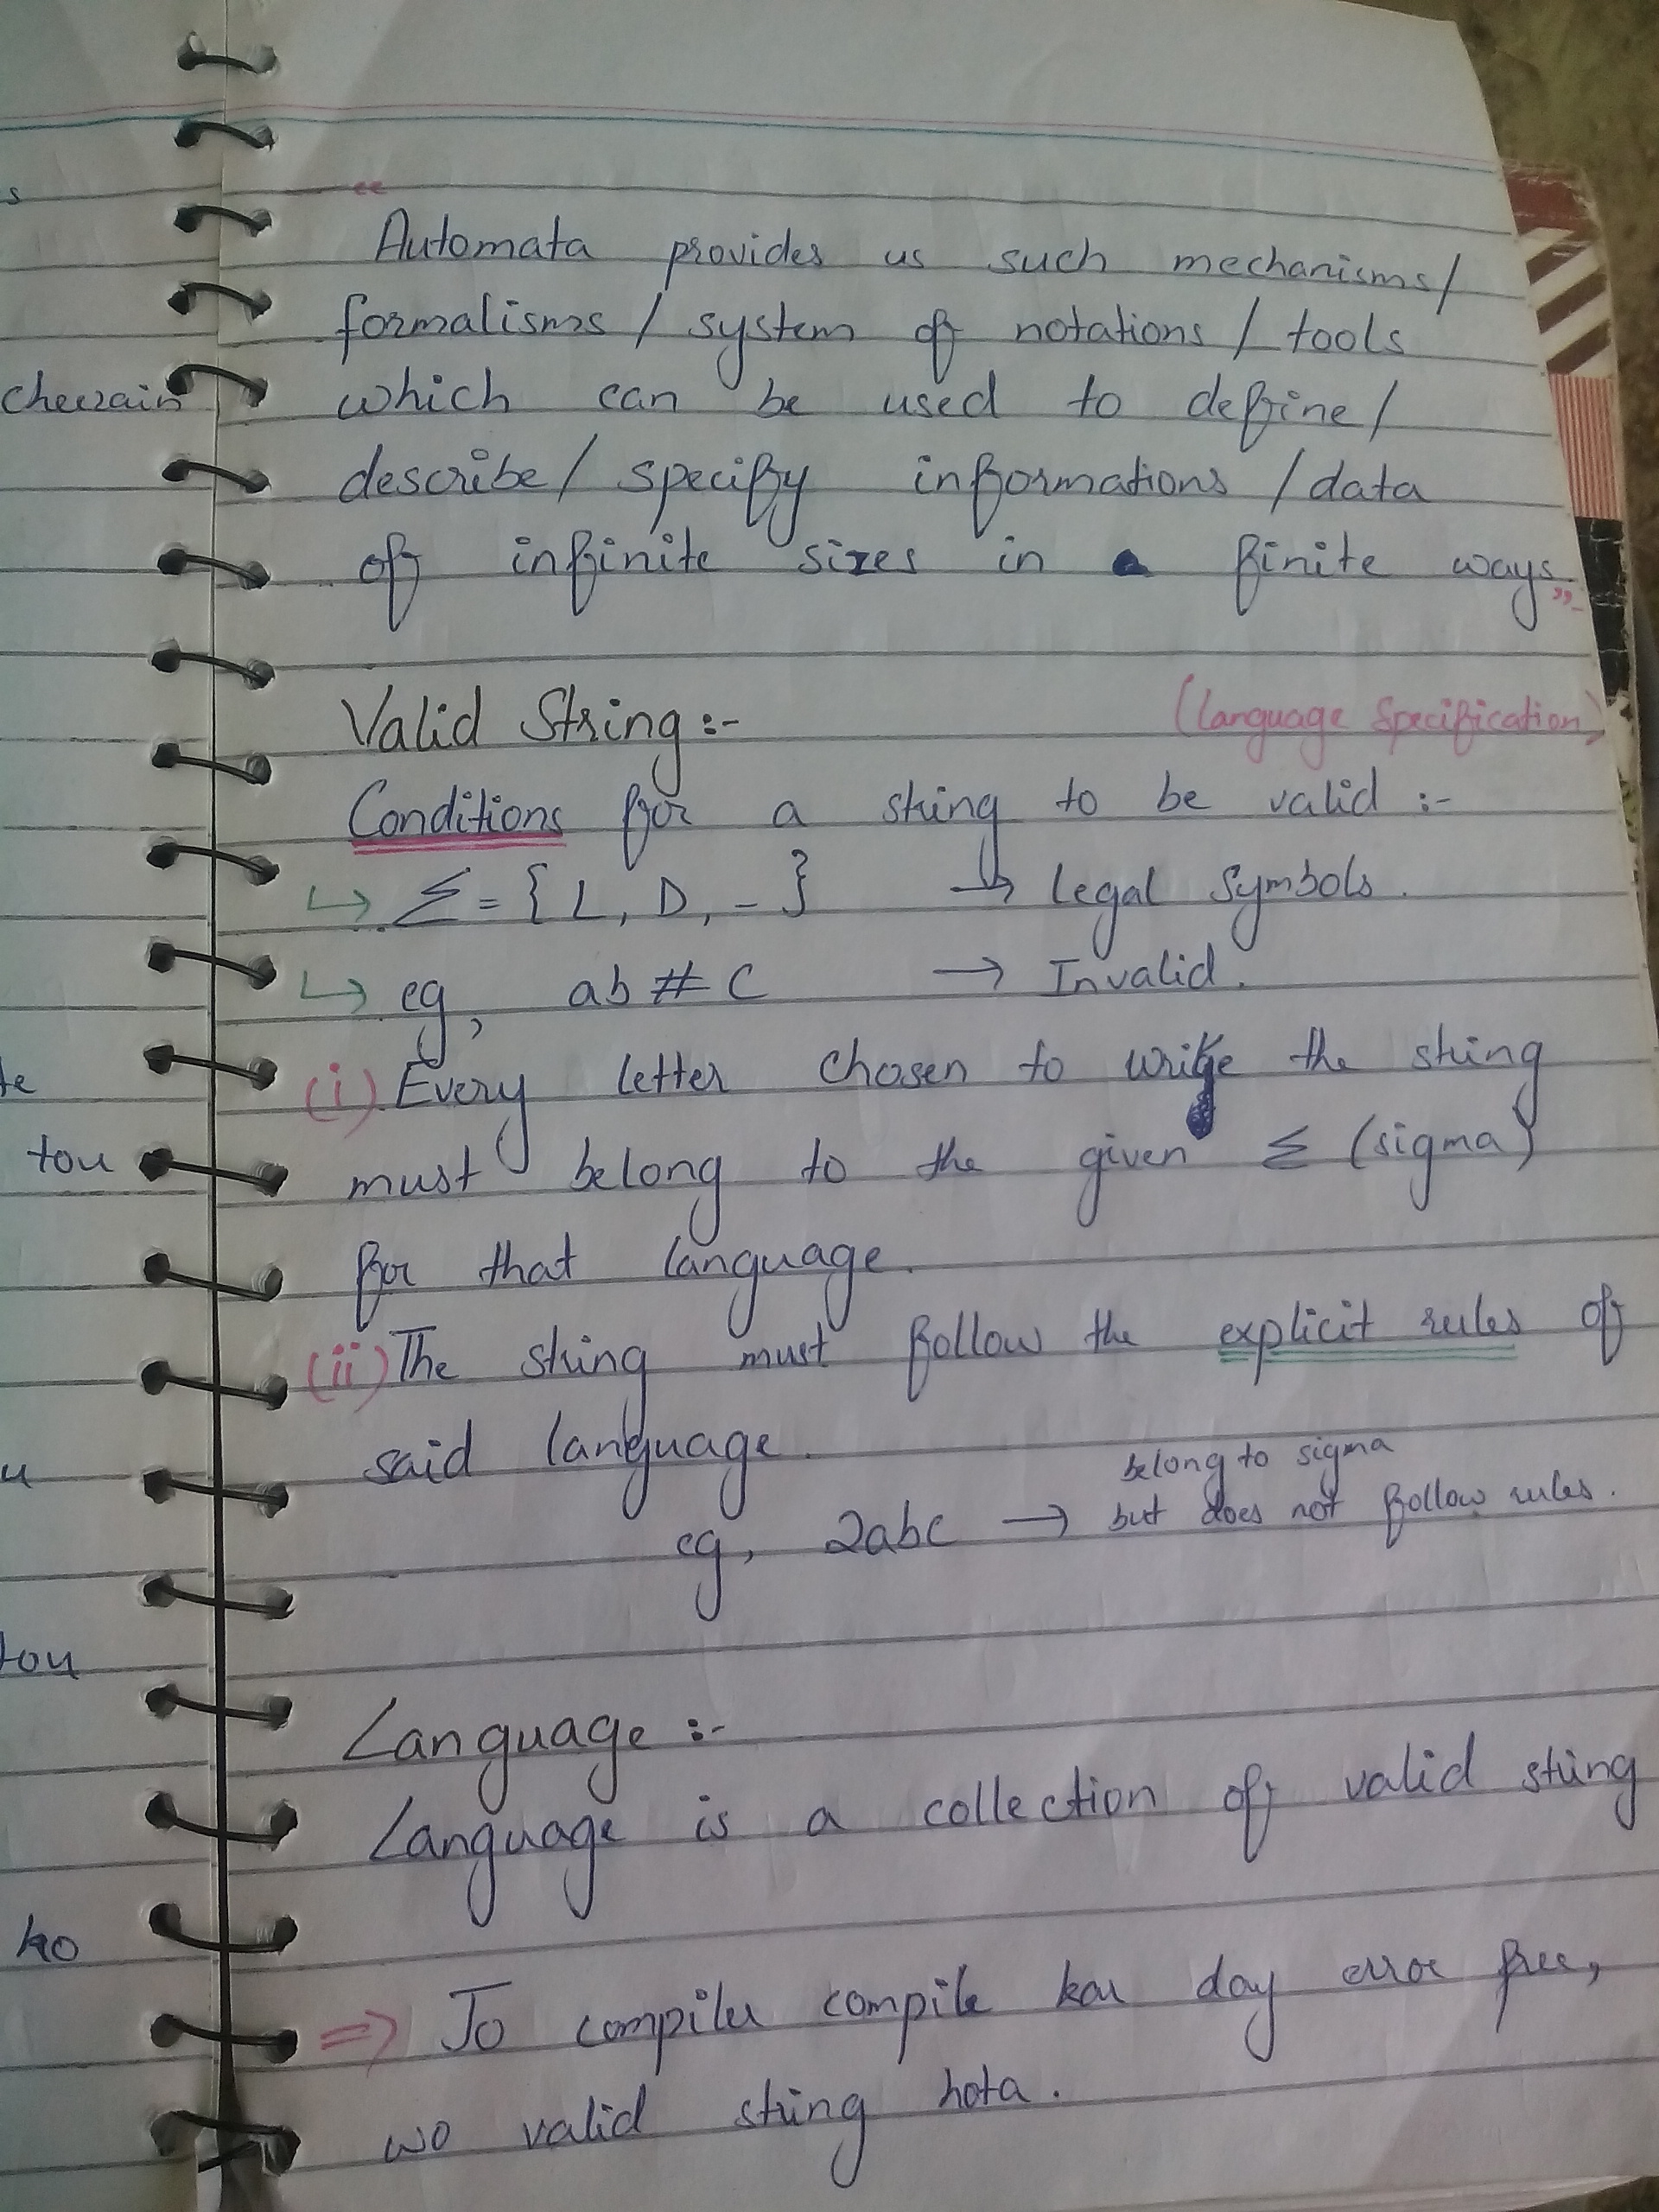 s
cheezain
te
tou
u
tou
ko
“
Automata provides us such mechanisms/
formalisms / system of notations / tools
which can be used to define/
describe/ specify informations /data
of infinite sizes in finite ways”
Valid String:- (Language Specification)
Conditions for a string to be valid :-
↳ Σ = { L, D, _ } → Legal Symbols.
↳ eg, ab # C → Invalid.
(i) Every letter chosen to write the string
must belong to the given Σ (sigma)
for that language.
(ii) The string must follow the explicit rules of
said language.
belong to sigma
eg, 2abc → but does not follow rules.
Language :-
Language is a collection of valid string
⇒ Jo compiler compile kar day error free,
wo valid string hota.